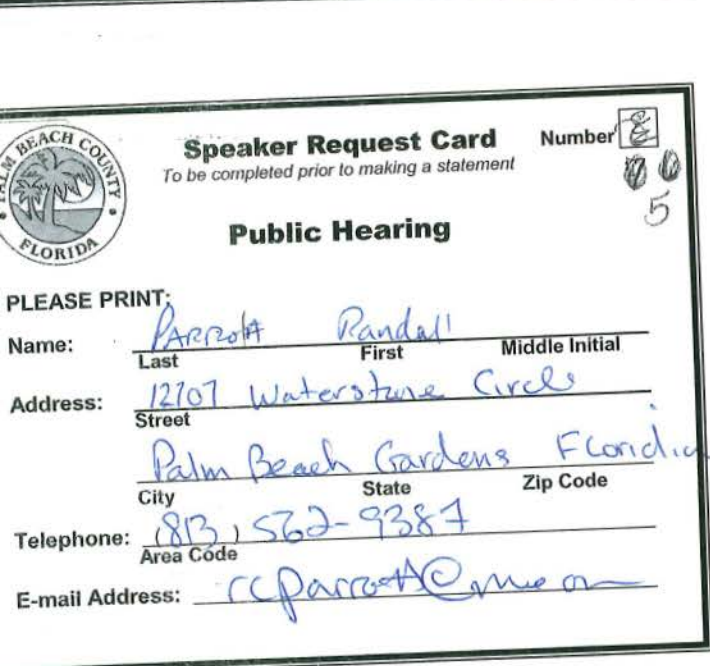 PALM BEACH COUNTY
FLORIDA
Speaker Request Card
Number 8
To be completed prior to making a statement
5
Public Hearing
PLEASE PRINT:
Name: Parrott Randall
Last First Middle Initial
Address: 12707 Waterstone Circle
Street
Palm Beach Gardens Florida
City State Zip Code
Telephone: (813) 562-9387
Area Code
E-mail Address: